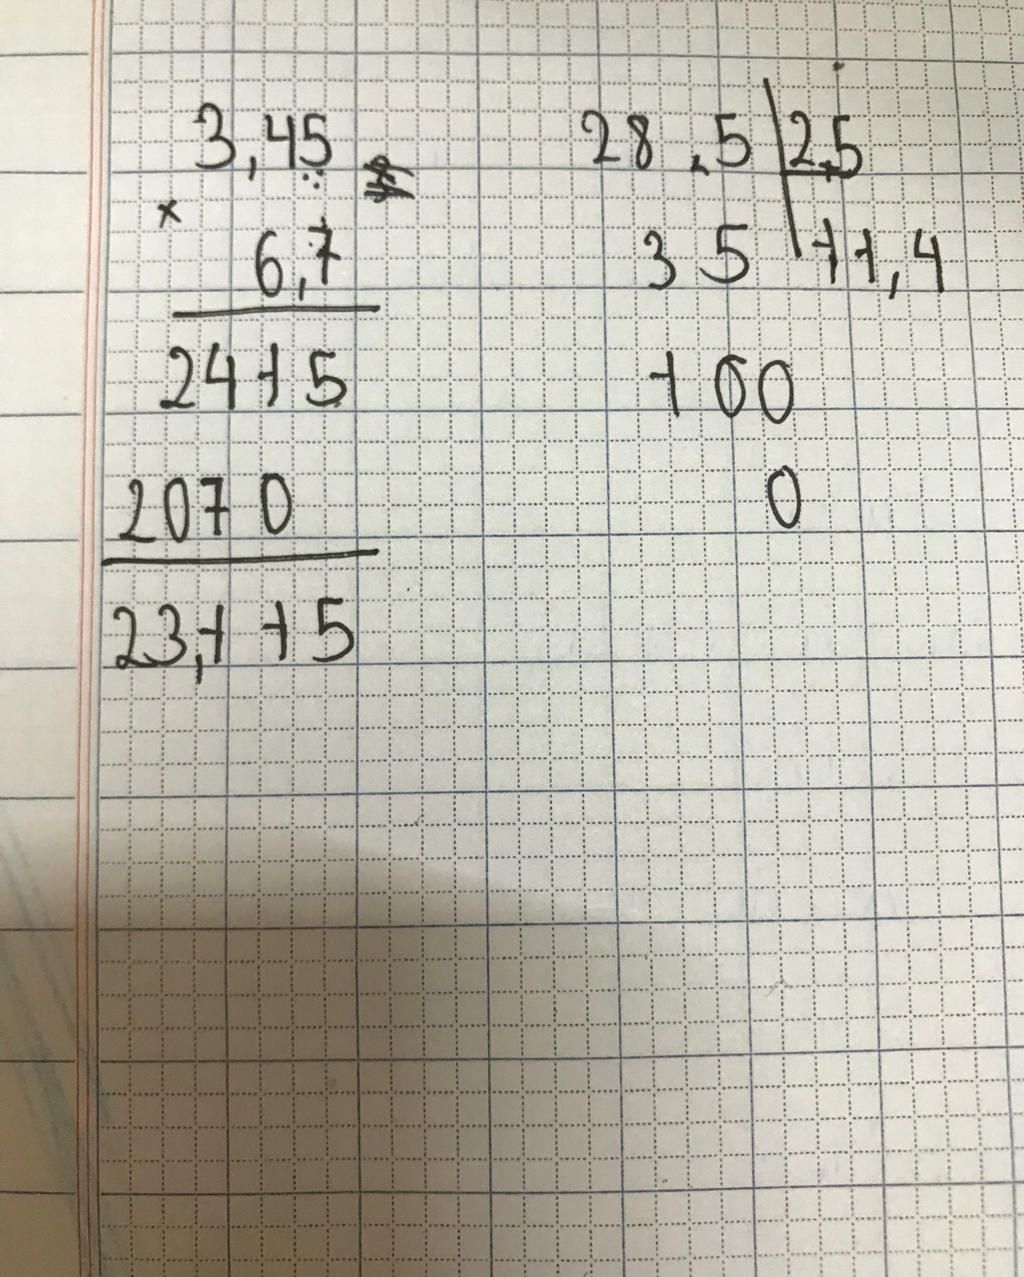 3,45
x
6,7
2415
2070
23,115
28,5 2,5
35 11,4
100
0